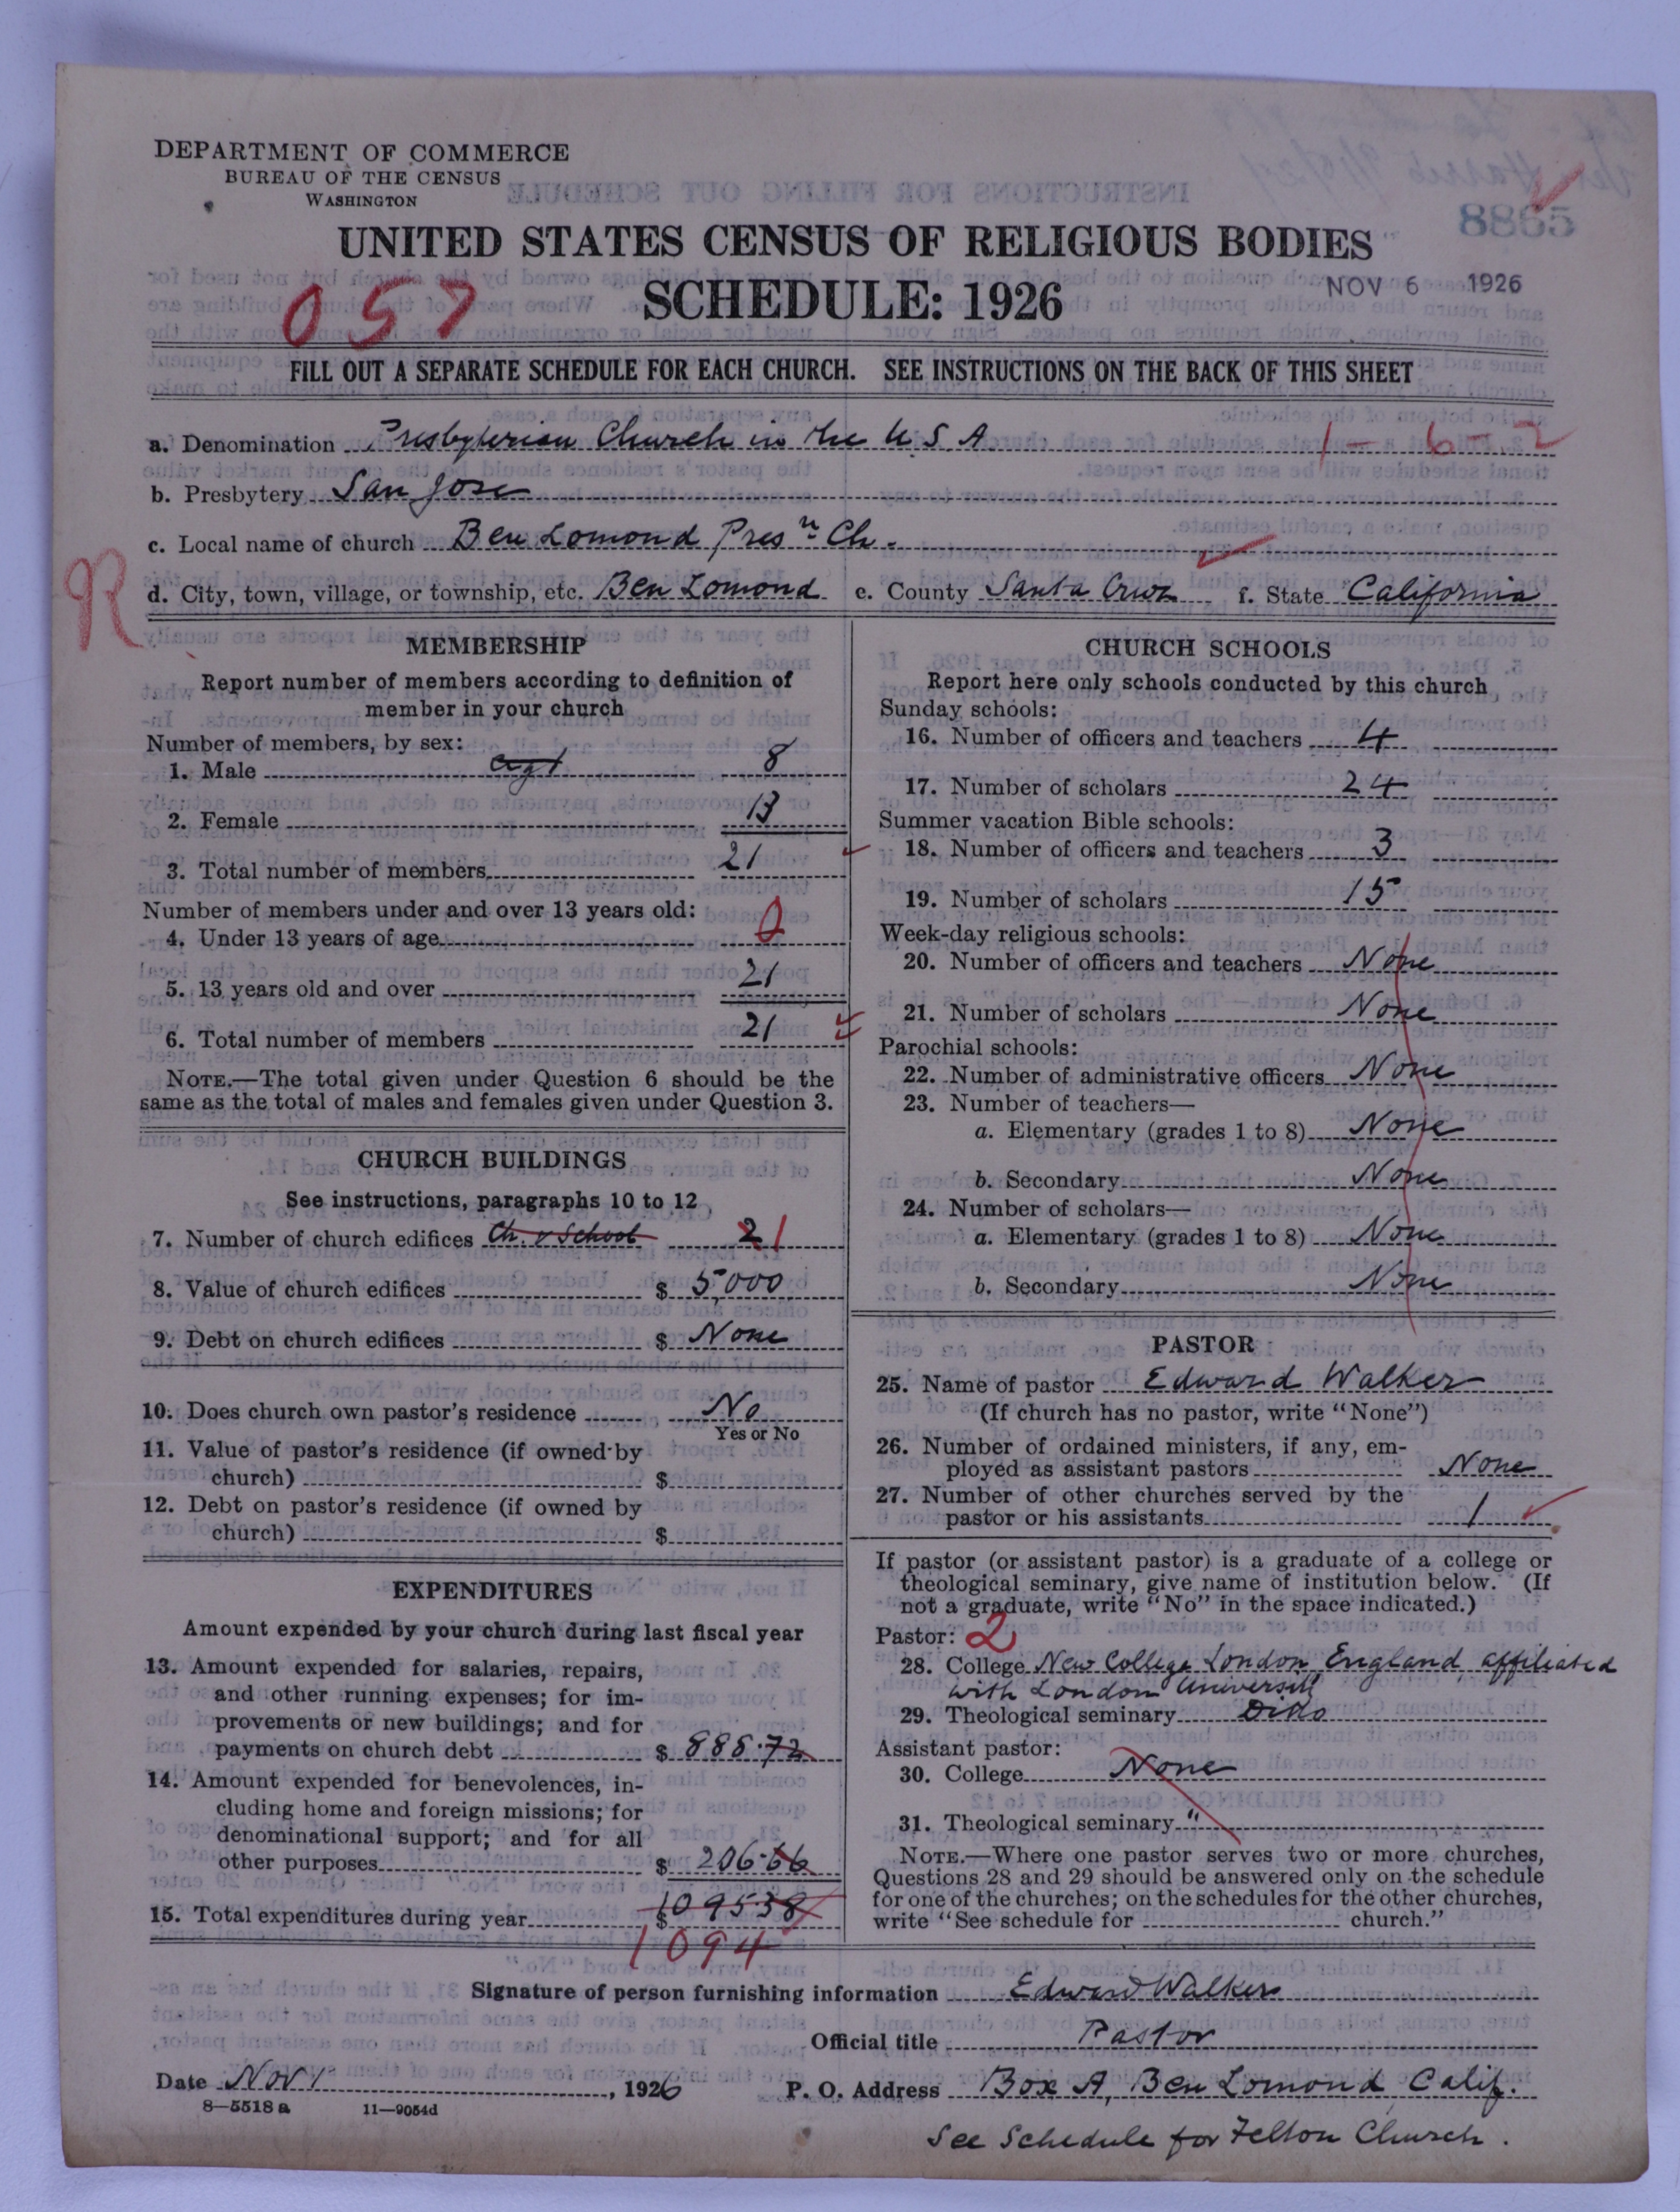 DEPARTMENT OF COMMERCE
BUREAU OF THE CENSUS
WASHINGTON
8865
UNITED STATES CENSUS OF RELIGIOUS BODIES
SCHEDULE: 1926
NOV 6 1926
057
FILL OUT A SEPARATE SCHEDULE FOR EACH CHURCH. SEE INSTRUCTIONS ON THE BACK OF THIS SHEET
a. Denomination Presbyterian Church in the U S A 1-6-2
b. Presbytery San Jose
c. Local name of church Ben Lomond Presn Ch.
R
d. City, town, village, or township, etc. Ben Lomond e. County Santa Cruz f. State California
MEMBERSHIP
Report number of members according to definition of
member in your church
Number of members, by sex:
1. Male 8
2. Female 13
3. Total number of members 21
Number of members under and over 13 years old:
4. Under 13 years of age 0
5. 13 years old and over 21
6. Total number of members 21
NOTE.—The total given under Question 6 should be the
same as the total of males and females given under Question 3.
CHURCH BUILDINGS
See instructions, paragraphs 10 to 12
7. Number of church edifices Ch. & School 2 1
8. Value of church edifices $ 5,000
9. Debt on church edifices $ None
10. Does church own pastor's residence No
Yes or No
11. Value of pastor's residence (if owned by
church) $
12. Debt on pastor's residence (if owned by
church) $
EXPENDITURES
Amount expended by your church during last fiscal year
13. Amount expended for salaries, repairs,
and other running expenses; for im-
provements or new buildings; and for
payments on church debt $ 888.72
14. Amount expended for benevolences, in-
cluding home and foreign missions; for
denominational support; and for all
other purposes $ 206.66
15. Total expenditures during year $ 1095.38
1094
CHURCH SCHOOLS
Report here only schools conducted by this church
Sunday schools:
16. Number of officers and teachers 4
17. Number of scholars 24
Summer vacation Bible schools:
18. Number of officers and teachers 3
19. Number of scholars 15
Week-day religious schools:
20. Number of officers and teachers None
21. Number of scholars None
Parochial schools:
22. Number of administrative officers None
23. Number of teachers—
a. Elementary (grades 1 to 8) None
b. Secondary None
24. Number of scholars—
a. Elementary (grades 1 to 8) None
b. Secondary None
PASTOR
25. Name of pastor Edward Walker
(If church has no pastor, write "None")
26. Number of ordained ministers, if any, em-
ployed as assistant pastors None
27. Number of other churches served by the
pastor or his assistants 1
If pastor (or assistant pastor) is a graduate of a college or
theological seminary, give name of institution below. (If
not a graduate, write "No" in the space indicated.)
Pastor: 2
28. College New College London, England, affiliated
with London University
29. Theological seminary Ditto
Assistant pastor:
30. College None
31. Theological seminary "
NOTE.—Where one pastor serves two or more churches,
Questions 28 and 29 should be answered only on the schedule
for one of the churches; on the schedules for the other churches,
write "See schedule for church."
Signature of person furnishing information Edward Walker
Official title Pastor
Date Nov 1, 1926 P. O. Address Box A, Ben Lomond, Calif.
8—5518 a 11—9054d
See Schedule for Felton Church.